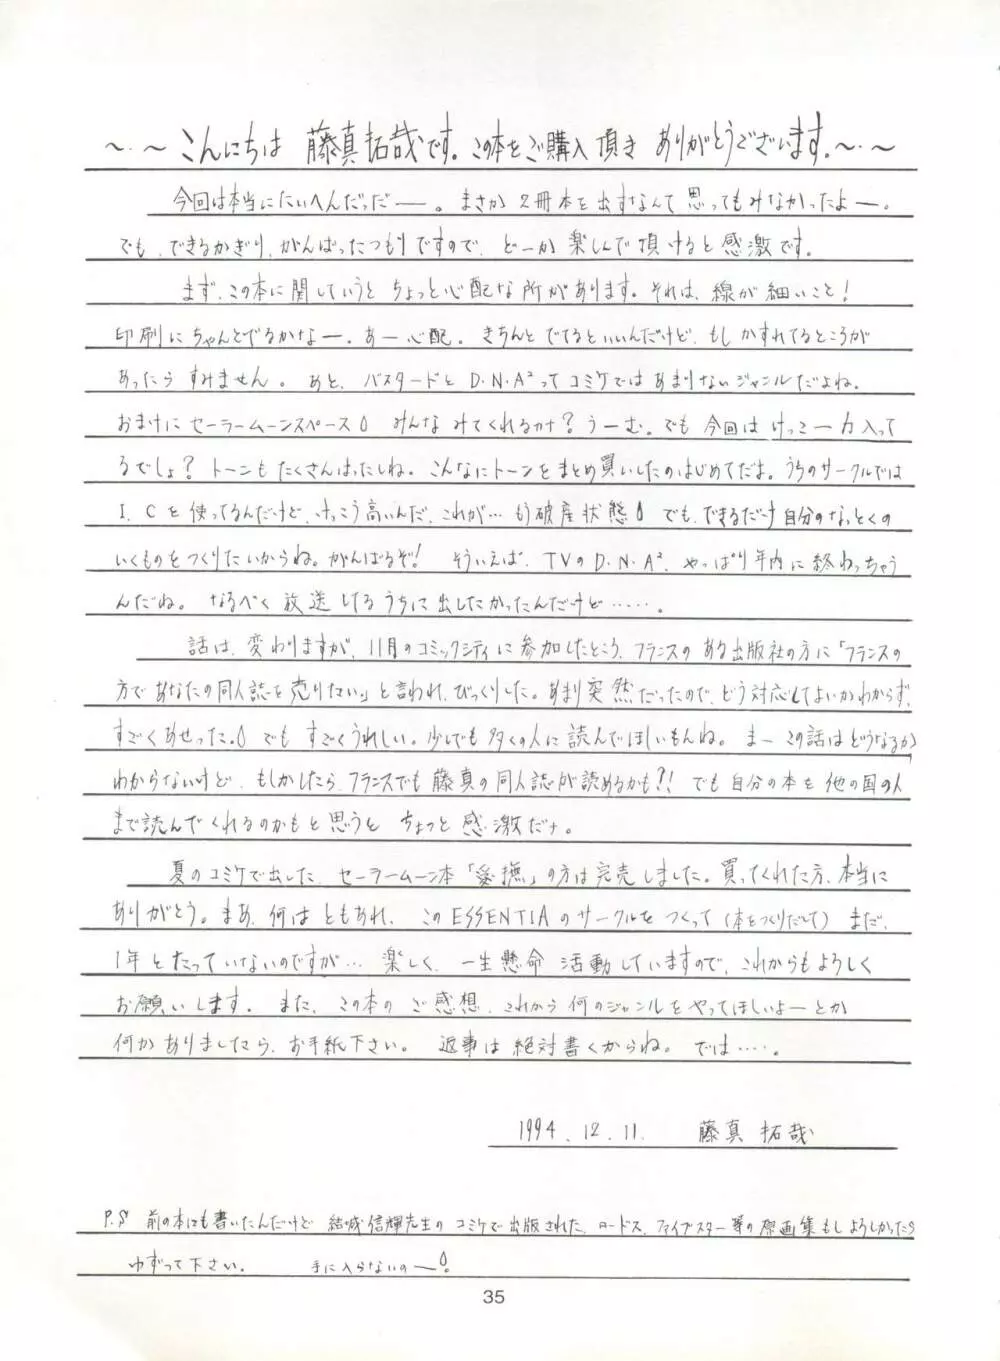 ～・～こんにちは 藤真拓哉です。この本をご購入頂き ありがとうございます。～・～
今回は本当にたいへんだっだー。まさか2冊本を出すなんて思ってもみなかったよー。
でも、できるかぎり、がんばったつもりですので、どーか楽しんで頂けると感激です。
まず、この本に関していうと ちょっと心配な所があります。それは、線が細いこと!
印刷にちゃんとでるかなー。あー心配。きちんとでてるといいんだけど、もしかすれてるところが
あったら すみません。あと、バスタードと D・N・A²ってコミケではあまりないジャンルだよね。
おまけにセーラームーンスペース みんなみてくれるカナ? うーむ。でも今回は けっこー力入って
るでしょ? トーンもたくさんはったしね。こんなにトーンをまとめ買いしたのはじめてだよ。うちのサークルでは
I.Cを使ってるんだけど、けっこう高いんだ、これが…もう破産状態 でも、できるだけ自分のなっとくの
いくものをつくりたいからね。がんばるぞ! そういえば、TVのD・N・A²、やっぱり年内に終わっちゃう
んだね。なるべく放送してるうちに出したかったんだけど……。
話は、変わりますが、11月のコミックシティに参加したところ、フランスのある出版社の方に「フランスの
方であなたの同人誌を売りたい」と言われ、びっくりした。あまり突然だったので、どう対応してよいかわからず、
すごくあせった。でも すごくうれしい。少しでも多くの人に読んでほしいもんね。まー この話はどうなるか
わからないけど、もしかしたら、フランスでも藤真の同人誌が読めるかも?! でも自分の本を他の国の人
まで読んでくれるのかもと思うと ちょっと感激だナ。
夏のコミケで出した、セーラームーン本「愛撫」の方は完売しました。買ってくれた方、本当に
ありがとう。まあ、何はともあれ、このESSENTIAのサークルをつくって(本をつくりだして) まだ、
1年とたっていないのですが…楽しく、一生懸命 活動していますので、これからもよろしく
お願いします。また、この本のご感想、これから何のジャンルをやってほしいよーとか
何かありましたら、お手紙下さい。返事は絶対書くからね。では……。
1994.12.11. 藤真拓哉
P.S 前の本にも書いたんだけど 結城信輝先生の コミケで出版された、ロードス、ファイブスター等の原画集もしよろしかったら
ゆずって下さい。 手に入らないのー!
35